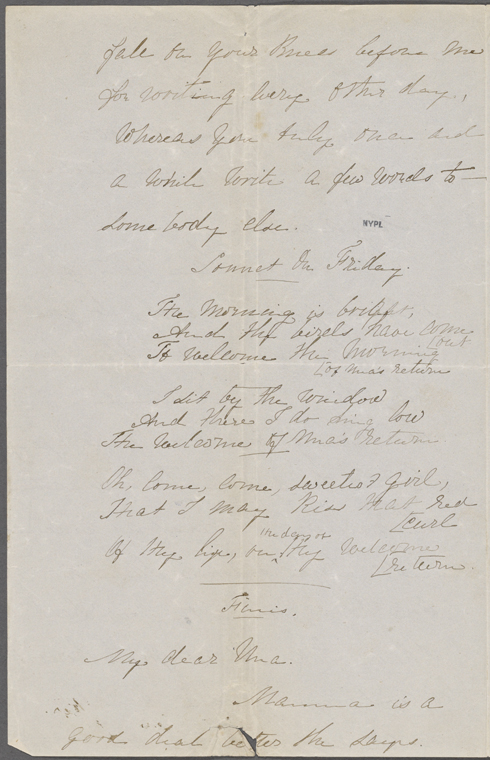 fall on your knees before me
for writing every other day,
whereas you truly once and
a while write a few words to
somebody else.
NYPL
Sonnet On Friday.
The morning is bright,
And the birds have come
[out
To welcome the morning
[of Una's return
I sit by the window
And there I do sing low
The welcome of Una's return
Oh, come, come, sweetest girl,
That I may kiss that red
[curl
Of thy lips, on the day of thy welcome
[return.
Finis.
My dear Una.
Mamma is a
good deal better she says.